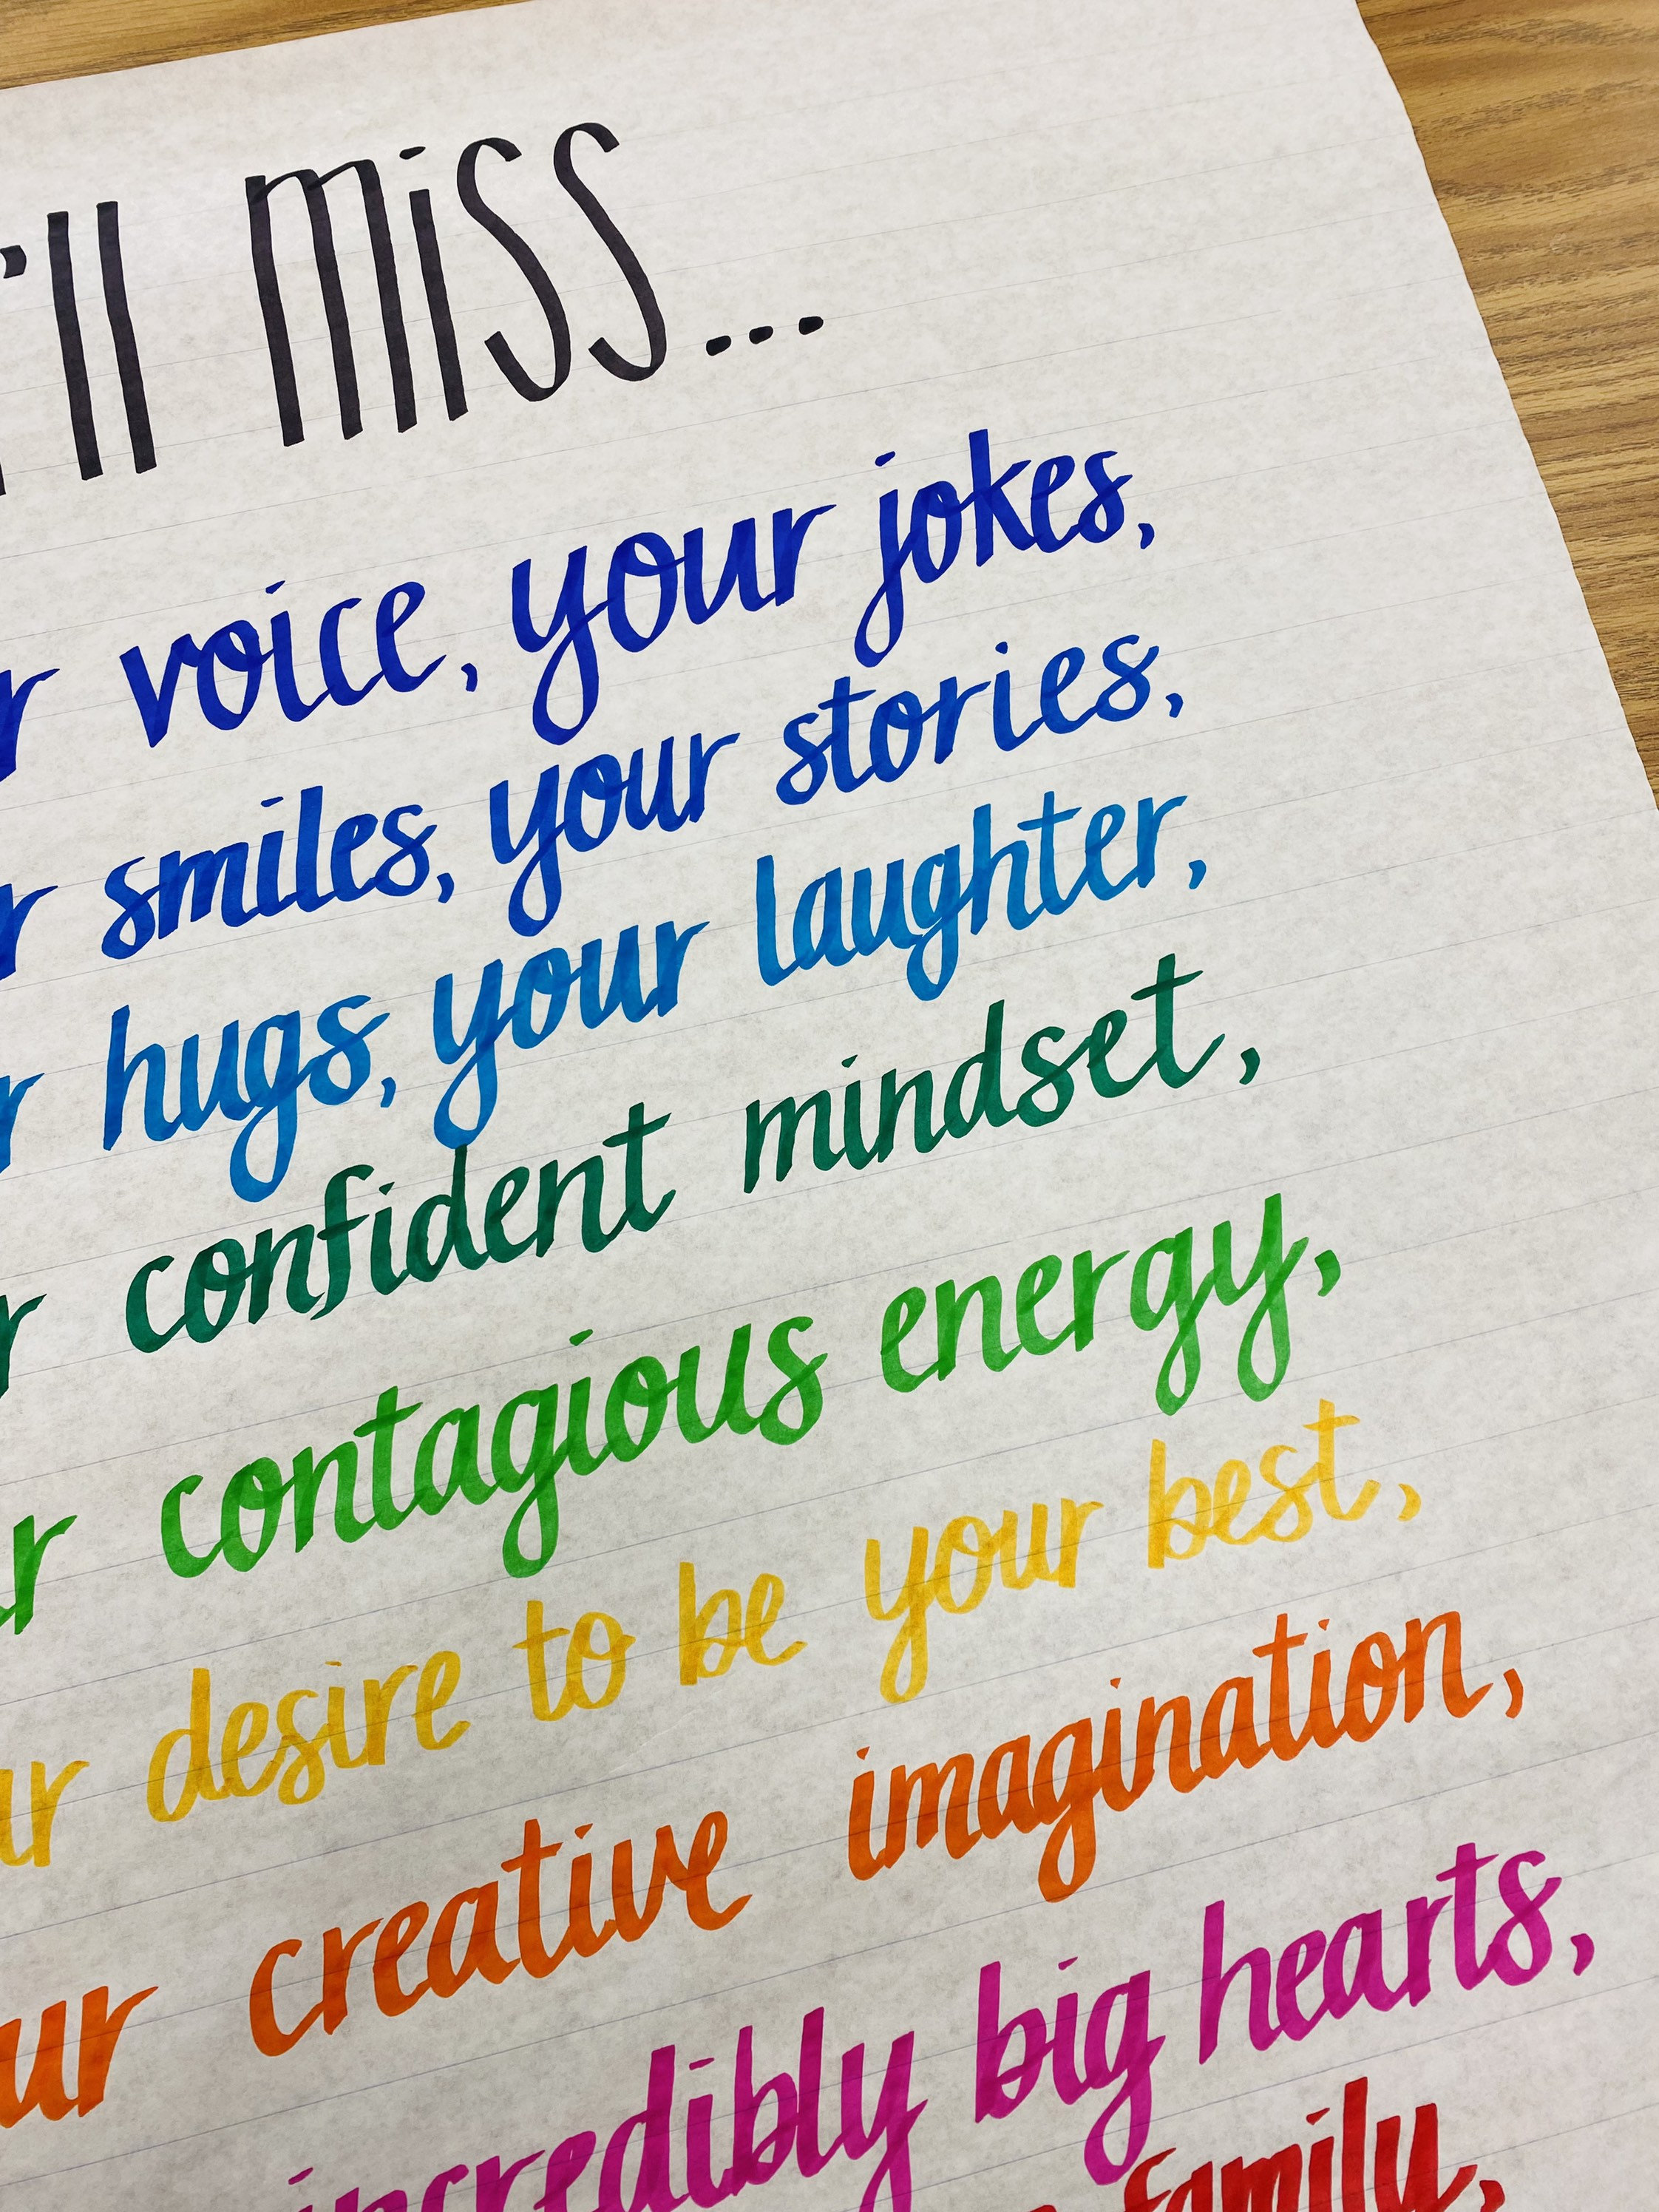 'll miss...
r voice, your jokes,
r smiles, your stories,
r hugs, your laughter,
r confident mindset,
ur contagious energy,
ur desire to be your best,
ur creative imagination,
incredibly big hearts,
family,